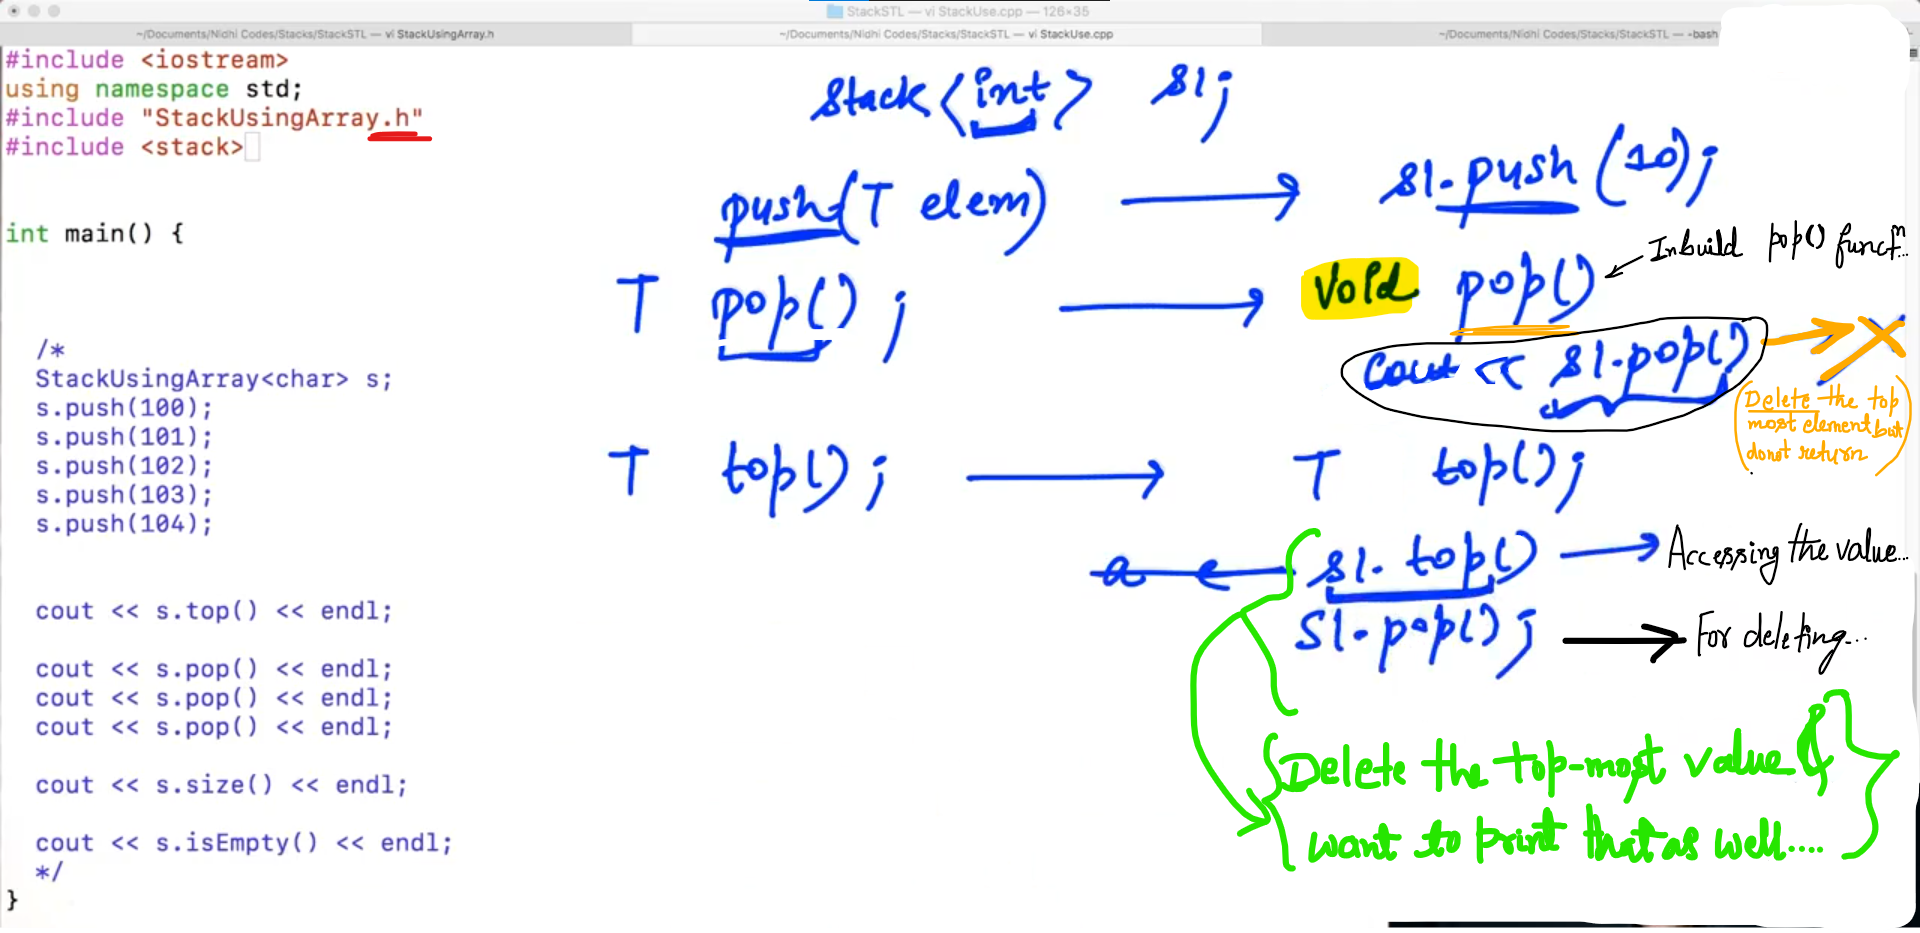 StackSTL — vi StackUse.cpp — 126×35
~/Documents/Nidhi Codes/Stacks/StackSTL — vi StackUsingArray.h
~/Documents/Nidhi Codes/Stacks/StackSTL — vi StackUse.cpp
~/Documents/Nidhi Codes/Stacks/StackSTL — -bash
#include <iostream>
using namespace std;
#include "StackUsingArray.h"
#include <stack>
int main() {
/*
StackUsingArray<char> s;
s.push(100);
s.push(101);
s.push(102);
s.push(103);
s.push(104);
cout << s.top() << endl;
cout << s.pop() << endl;
cout << s.pop() << endl;
cout << s.pop() << endl;
cout << s.size() << endl;
cout << s.isEmpty() << endl;
*/
}
Stack <int> s1;
push(T elem) → s1.push(10);
T pop(); → Void pop() ← Inbuild pop() functn...
cout << s1.pop() → X
(Delete the top
most element but
donot return)
T top(); → T top();
a ← s1.top() → Accessing the value...
s1.pop(); → For deleting...
{Delete the top-most value &
want to print that as well....}